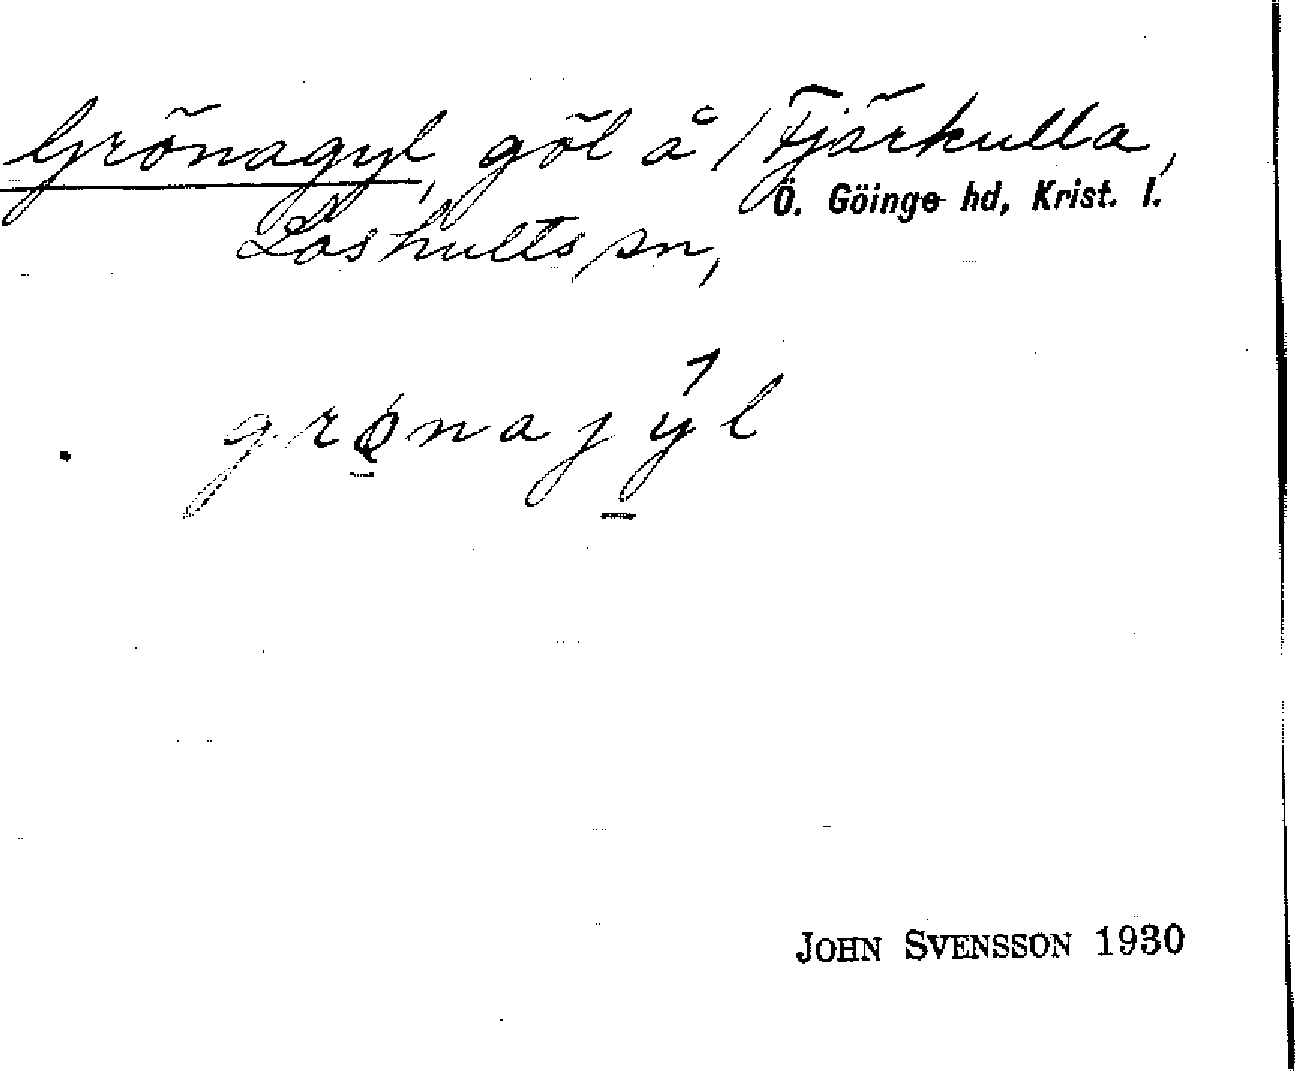 Grönagyl, göl å / Fjärkulla,
Ö. Göinge hd, Krist. l.
Loshults sn,
grønajýl
JOHN SVENSSON 1930